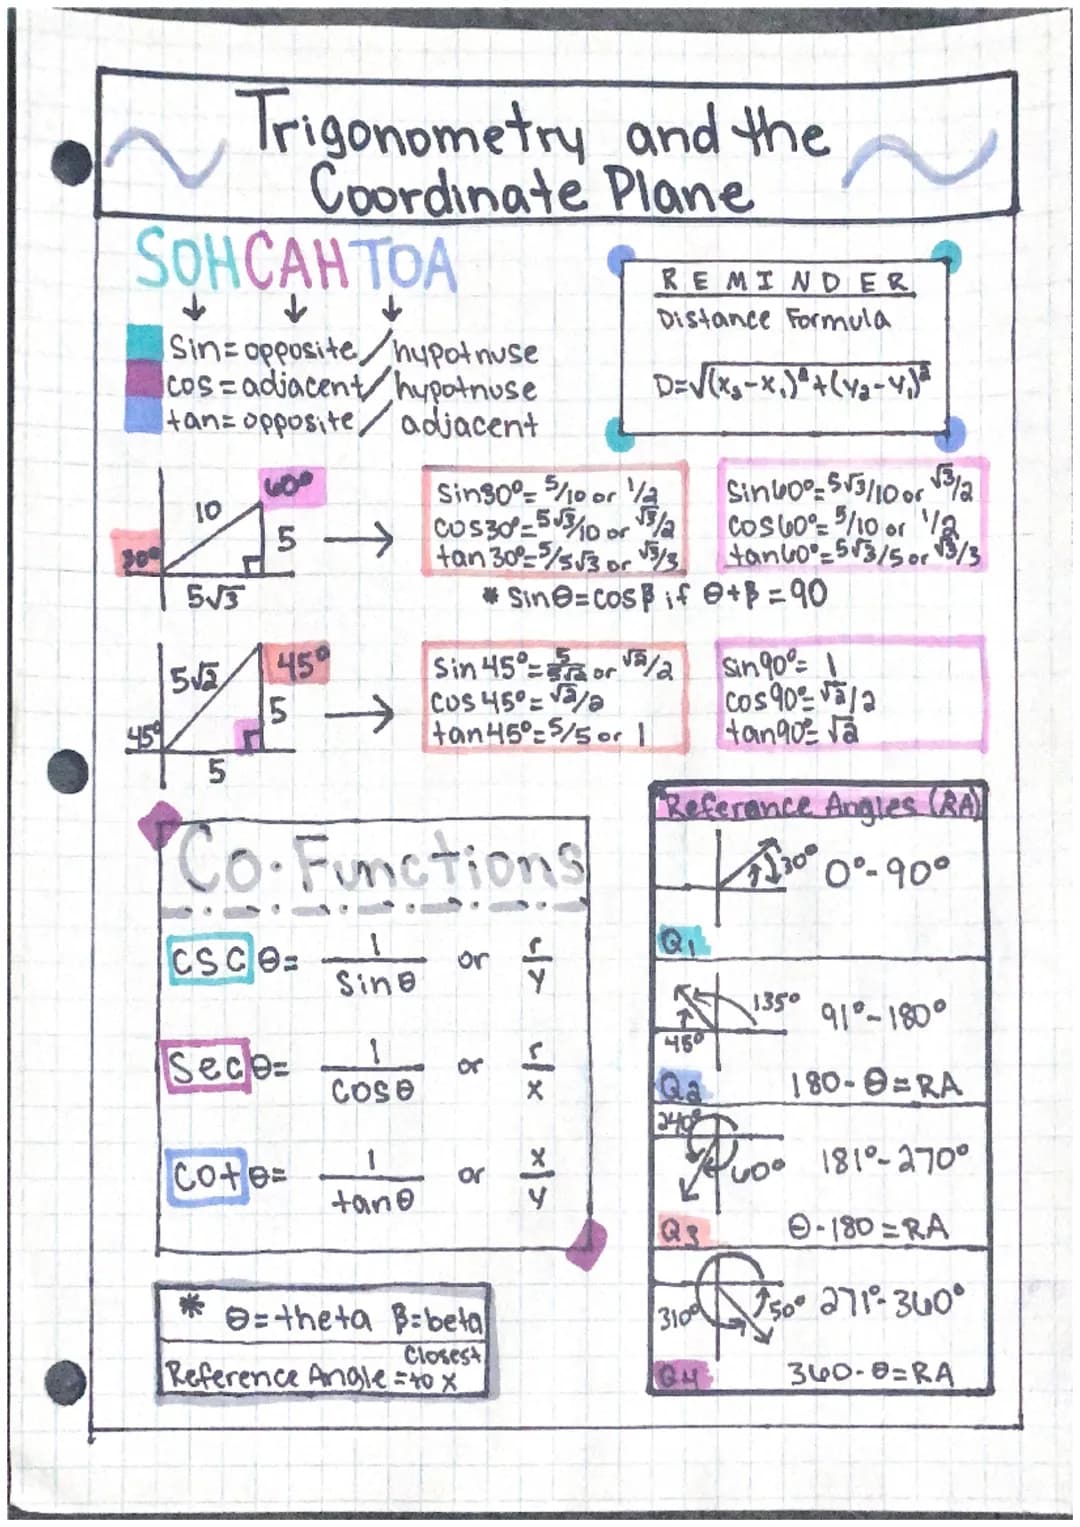 Trigonometry and the
Coordinate Plane
SOHCAHTOA
Sin=opposite/hypotnuse
cos=adjacent/hypotnuse
tan=opposite/adjacent
REMINDER
Distance Formula
D=√(x₂-x₁)²+(y₂-y₁)²
60°
10
5
30°
5√3
Sin30°=5/10 or 1/2
cos30°=5√3/10 or √3/2
tan30°=5/5√3 or √3/3
Sin60°=5√3/10 or √3/2
cos60°=5/10 or 1/2
tan60°=5√3/5 or √3/3
* Sinθ=cosβ if θ+β=90
45°
5√2
5
45°
5
Sin45°=5/5√2 or √2/2
cos45°=√2/2
tan45°=5/5 or 1
Sin90°=1
cos90°=√2/2
tan90°=√2
Co-Functions
cscθ= 1/sinθ or r/y
Secθ= 1/cosθ or r/x
Cotθ= 1/tanθ or x/y
* θ=theta β=beta
Reference Angle = Closest to x
*Reference Angles (RA)
30° 0°-90°
Q1
135° 91°-180°
45°
Q2 180-θ=RA
240°
60° 181°-270°
Q3 θ-180=RA
310° 50° 271°-360°
Q4 360-θ=RA